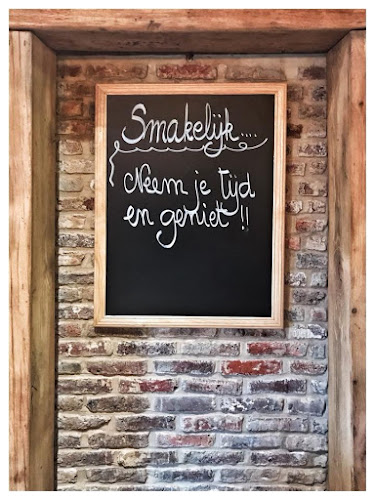 Smakelijk....
Neem je tijd
en geniet !!